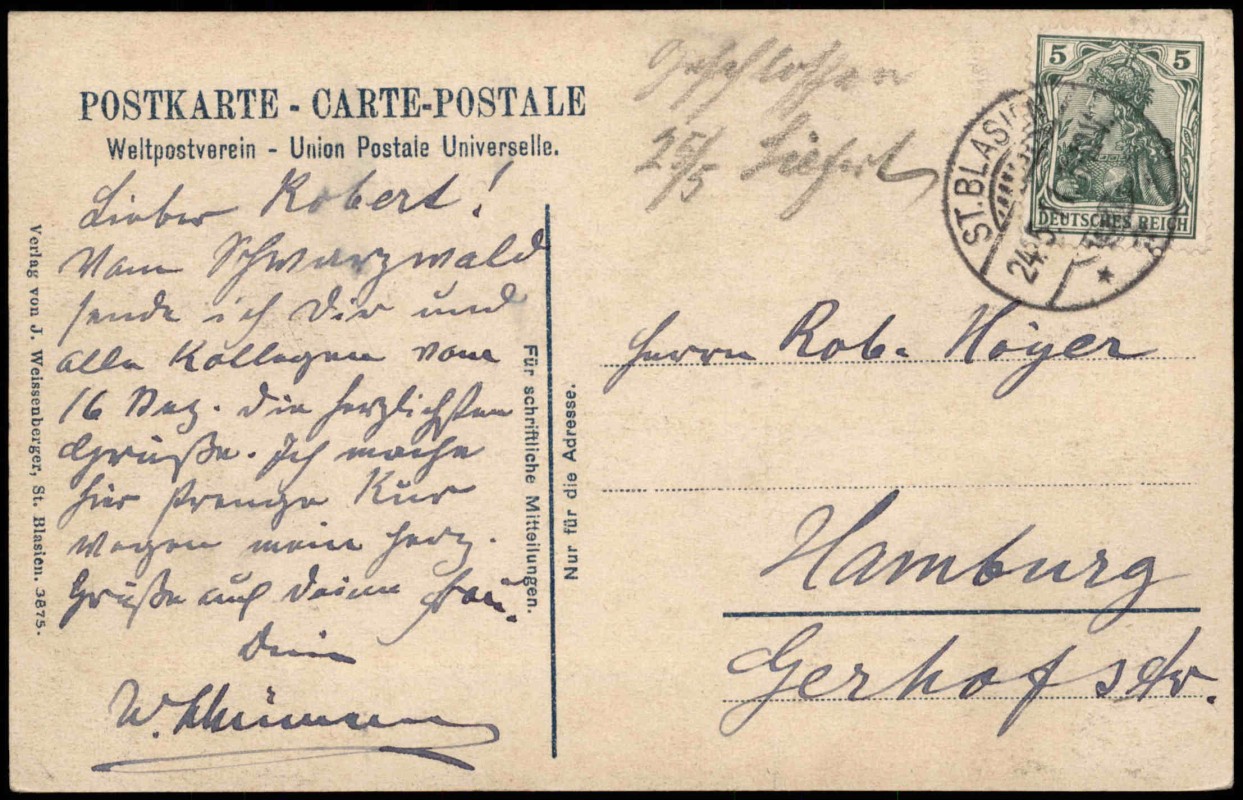 POSTKARTE - CARTE-POSTALE
Weltpostverein - Union Postale Universelle.
Lieber Robert!
Vom Schwarzwald
sende ich Dir und
alle Kollegen vom
16 Dez. die herzlichsten
Grüße. Ich mache
hier strenge Kur
wegen mein Herz.
Grüße auch Deine Frau.
Dein
W.
Verlag von J. Weissenberger, St. Blasien. 3875.
Für schriftliche Mitteilungen.
Nur für die Adresse.
Geschlossen
25/5
5 5
DEUTSCHES REICH
ST. BLASIEN
24.5
Herrn Rob. Höyer
Hamburg
Gerhofstr.